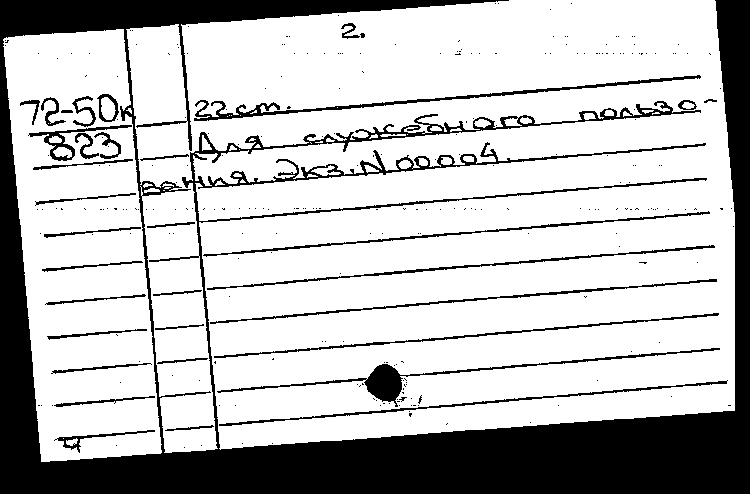 2.
72-50к 22 ст.
823 Для служебного пользо-
вания. Экз. N 00004.
ч